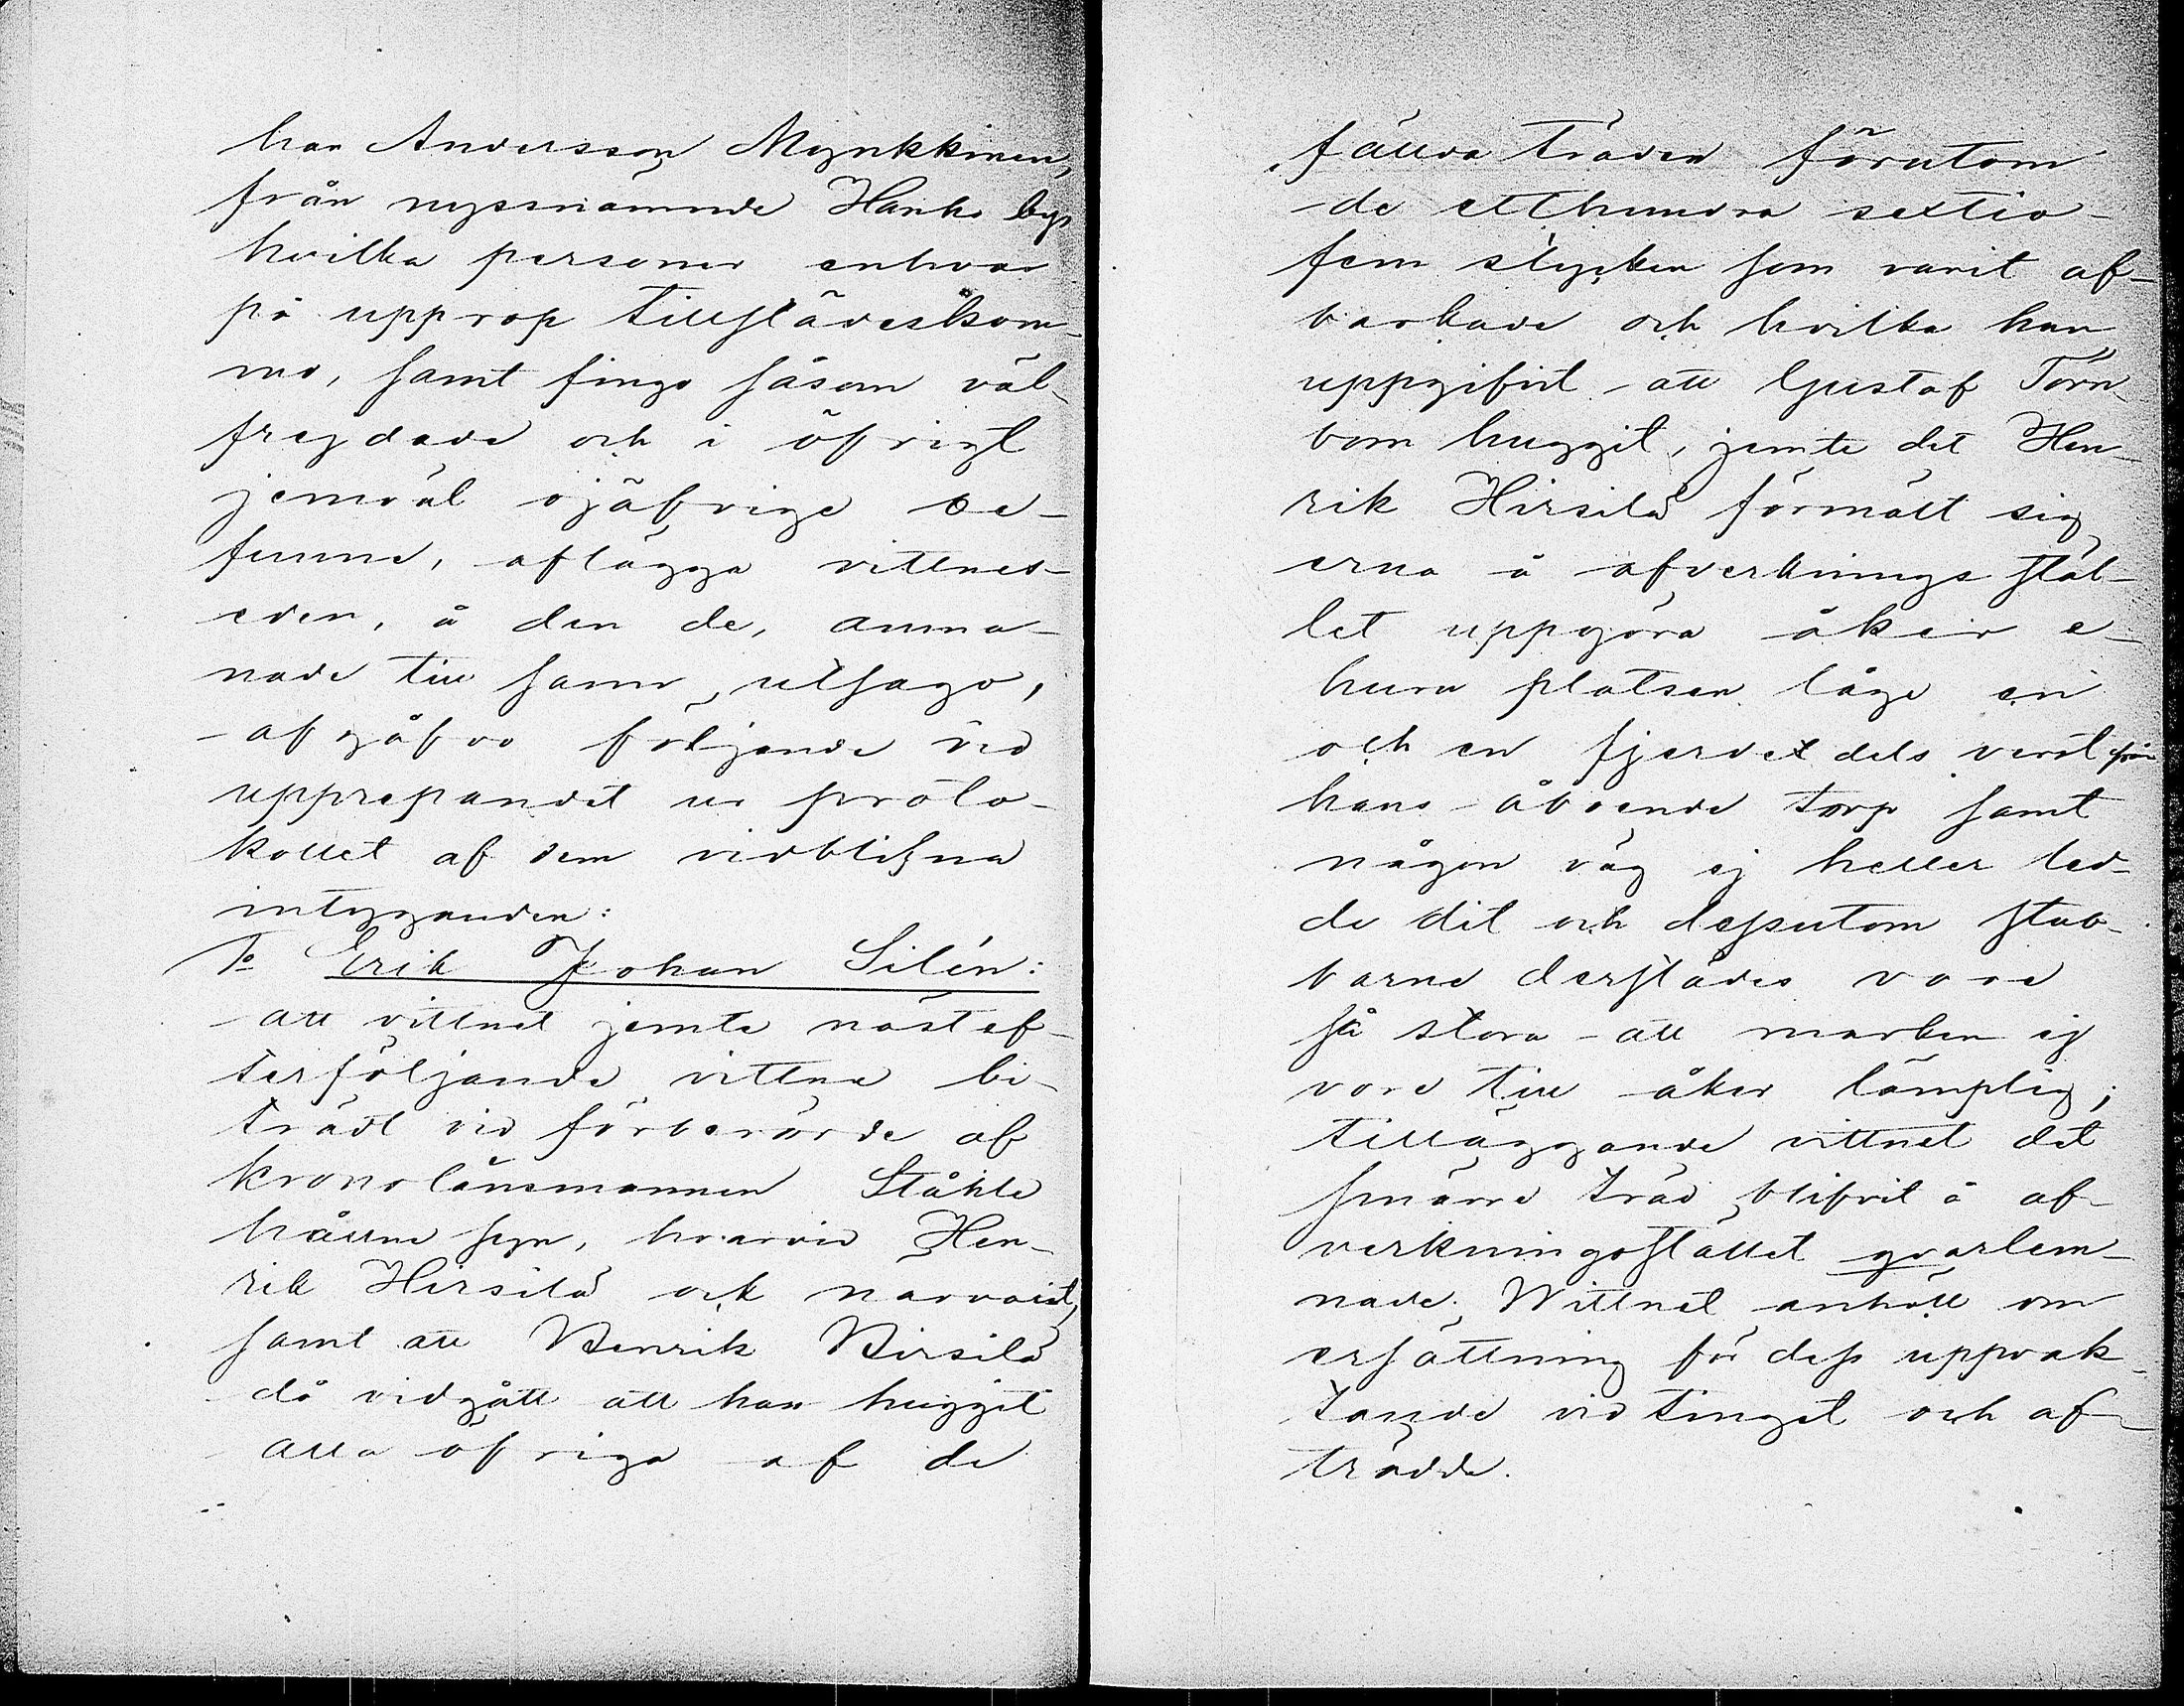 han Andersson Mynkkinen,
från nyssnämnde Hanho by,
hvilka personer enhvar
på upprop tillstädeskom-
mo, samt fingo såsom väl-
frejdade och i öfrigt
jemväl ojäfvige be-
funne, aflägga vittnes-
eden, å den de, arma-
nade till sann utsago,
afgåfvo följande vid
upprepandet ur proto-
kollet af dem vidblifna
intyganden:
1o Erik Johan Silén:
att vittnet jemte nästef-
terföljande vittne bi-
trädt vid förberörde af
kronolänsmannen Ståhle
hållne syn, hvarvid Hen-
rik Hirsilä ock närvarit,
samt att Henrik Hirsilä
då vidgått att han huggit
alla öfriga af de
fällda träden förutom
de etthundra sextio-
fem stycken som varit af-
barkade och hvilka han
uppgifvit att Gustaf Törn-
bom huggit, jemte det Hen-
rik Hirsilä förmält sig
erna å afverkningsstäl-
let uppgöra åker e-
huru platsen låge en
och en fjerdedels verst från
hans åboende torp samt
någon väg ej heller led-
de dit och dessutom stub-
barne derstädes vore
så stora att marken ej
vore till åker lämplig;
tilläggande vittnet det
smärre träd blifvit å af-
verkningsstället qvarlem-
nade. Wittnet anhöll om
ersättning för dess uppvak-
tande vid tinget och af-
trädde.